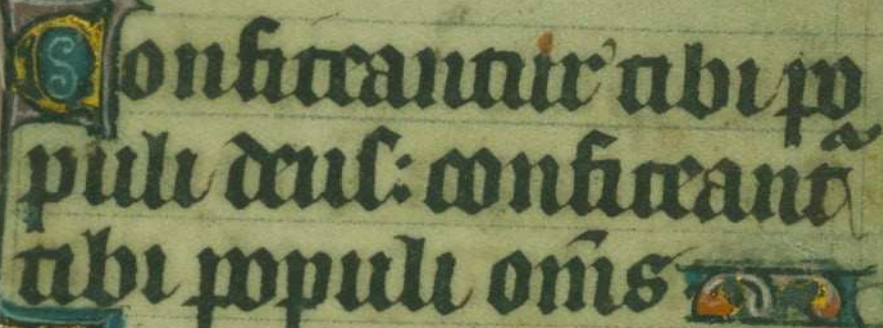 Confiteantur tibi po
puli deus: confiteant᷑
tibi populi om̅s